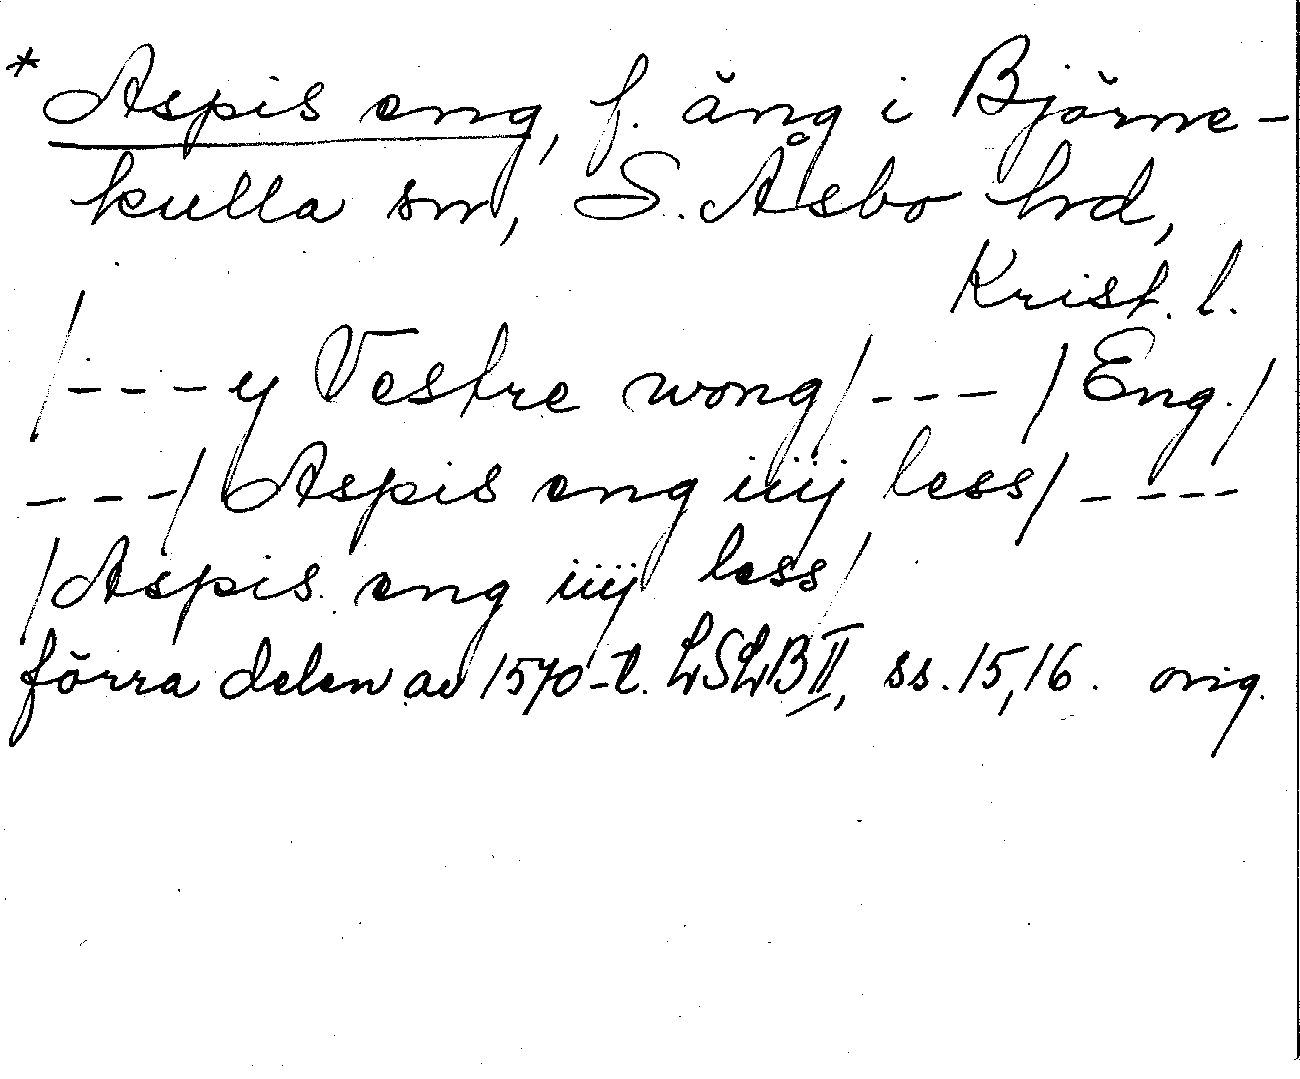 * Aspis eng, f. äng i Björne-
kulla sn, S. Åsbo hrd,
Krist. l.
/---y Vestre wong/---/Eng./
---/Aspis eng iiij less/----
/Aspis eng iiij less/
förra delen av 1570-t. LSLB II, ss. 15, 16. orig.